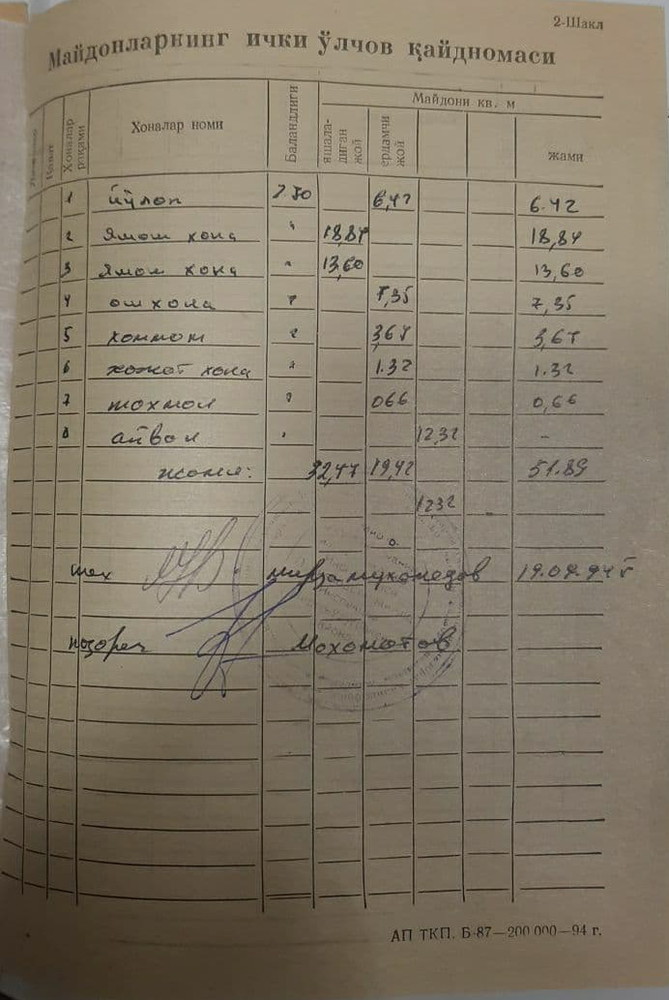 2-Шакл
Майдонларнинг ички ўлчов қайдномаси
Қават
Хоналар рақами
Хоналар номи
Баландлиги
Майдони кв. м
яшала-диган жой
ёрдамчи жой
жами
1 йўлак 2.50 6,42 6.42
2 Яшаш хона " 18,84 18,84
3 Яшаш хона " 13,60 13,60
4 ошхона " 7,35 7,35
5 хаммом " 3,67 3,67
6 хожат хона " 1.32 1.32
7 " 066 0,66
8 айвон " 12,32 -
жами: 32,47 19,42 51.89
12.32
тех мирзамухамедов
назорат Махаматов
АП ТКП. Б-87—200 000—94 г.